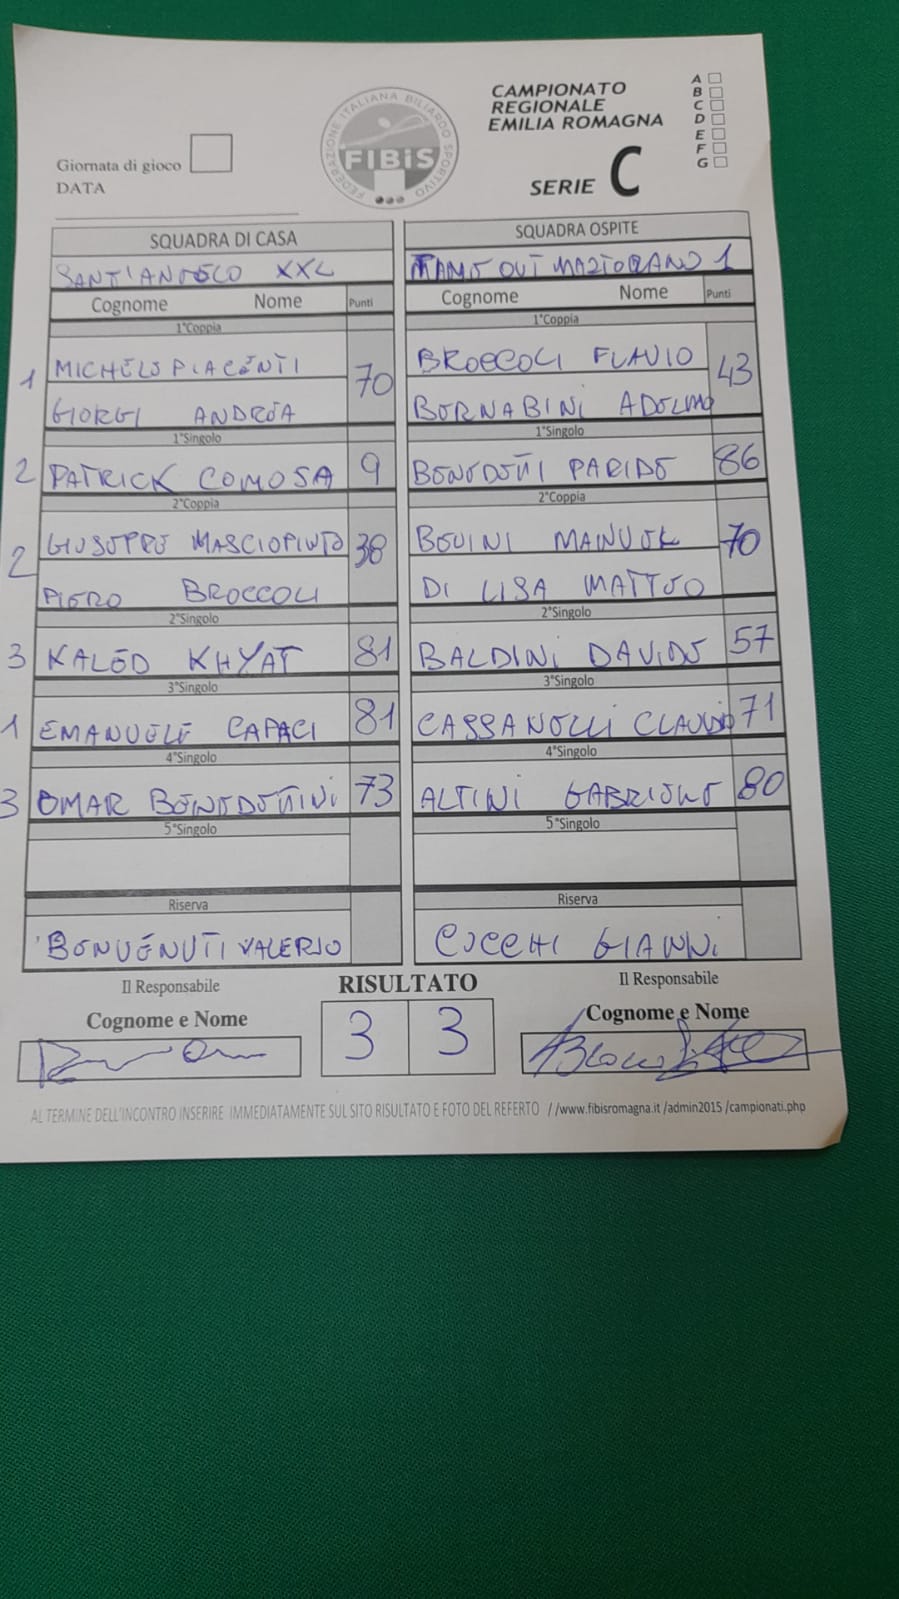 CAMPIONATO
REGIONALE
EMILIA ROMAGNA
SERIE C
A
B
C
D
E
F
G
FEDERAZIONE ITALIANA BILIARDO SPORTIVO
FIBiS
Giornata di gioco
DATA
SQUADRA DI CASA
SANT'ANGELO XXL
Cognome Nome Punti
1°Coppia
1 MICHELE PIACENTI 70
GIORGI ANDREA
1°Singolo
2 PATRICK COMOSA 9
2°Coppia
2 GIUSEPPE MASCIOPINTO 38
PIERO BROCCOLI
2°Singolo
3 KALED KHYAT 81
3°Singolo
1 EMANUELE CAPACI 81
4°Singolo
3 OMAR BENEDETTINI 73
5°Singolo
Riserva
BENVENUTI VALERIO
SQUADRA OSPITE
OUT 1
Cognome Nome Punti
1°Coppia
BROCCOLI FLAVIO 43
BERNABINI ADELMO
1°Singolo
BENEDETTI PARIDE 86
2°Coppia
BOVINI MANUEL 70
DI LISA MATTEO
2°Singolo
BALDINI DAVIDE 57
3°Singolo
CASSANELLI CLAUDIO 71
4°Singolo
ALTINI GABRIELE 80
5°Singolo
Riserva
CUCCHI GIANNI
Il Responsabile
Cognome e Nome
RISULTATO
3 3
Il Responsabile
Cognome e Nome
AL TERMINE DELL'INCONTRO INSERIRE IMMEDIATAMENTE SUL SITO RISULTATO E FOTO DEL REFERTO //www.fibisromagna.it /admin2015 /campionati.php